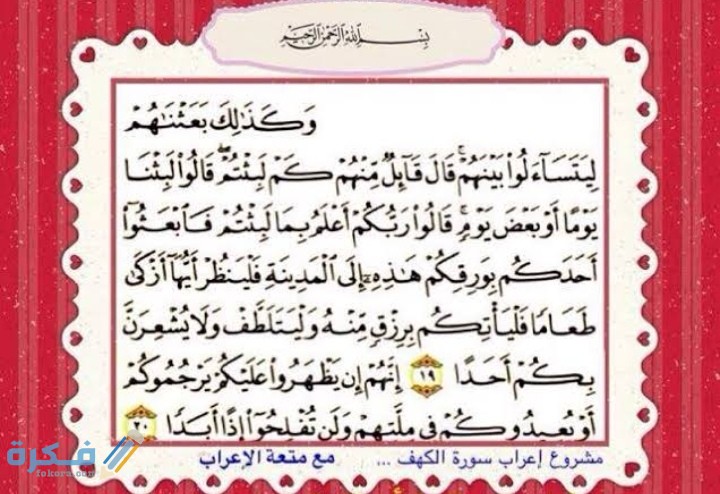 بِسْمِ اللَّهِ الرَّحْمَٰنِ الرَّحِيمِ
وَكَذَٰلِكَ بَعَثْنَٰهُمْ
لِيَتَسَآءَلُوا۟ بَيْنَهُمْ ۚ قَالَ قَآئِلٌ مِّنْهُمْ كَمْ لَبِثْتُمْ ۖ قَالُوا۟ لَبِثْنَا
يَوْمًا أَوْ بَعْضَ يَوْمٍ ۚ قَالُوا۟ رَبُّكُمْ أَعْلَمُ بِمَا لَبِثْتُمْ فَٱبْعَثُوٓا۟
أَحَدَكُم بِوَرِقِكُمْ هَٰذِهِۦٓ إِلَى ٱلْمَدِينَةِ فَلْيَنظُرْ أَيُّهَآ أَزْكَىٰ
طَعَامًا فَلْيَأْتِكُم بِرِزْقٍ مِّنْهُ وَلْيَتَلَطَّفْ وَلَا يُشْعِرَنَّ
بِكُمْ أَحَدًا ١٩ إِنَّهُمْ إِن يَظْهَرُوا۟ عَلَيْكُمْ يَرْجُمُوكُمْ
أَوْ يُعِيدُوكُمْ فِى مِلَّتِهِمْ وَلَن تُفْلِحُوٓا۟ إِذًا أَبَدًا ٢٠
مشروع إعراب سورة الكهف ... مع متعة الإعراب
فكرة
fekera.com